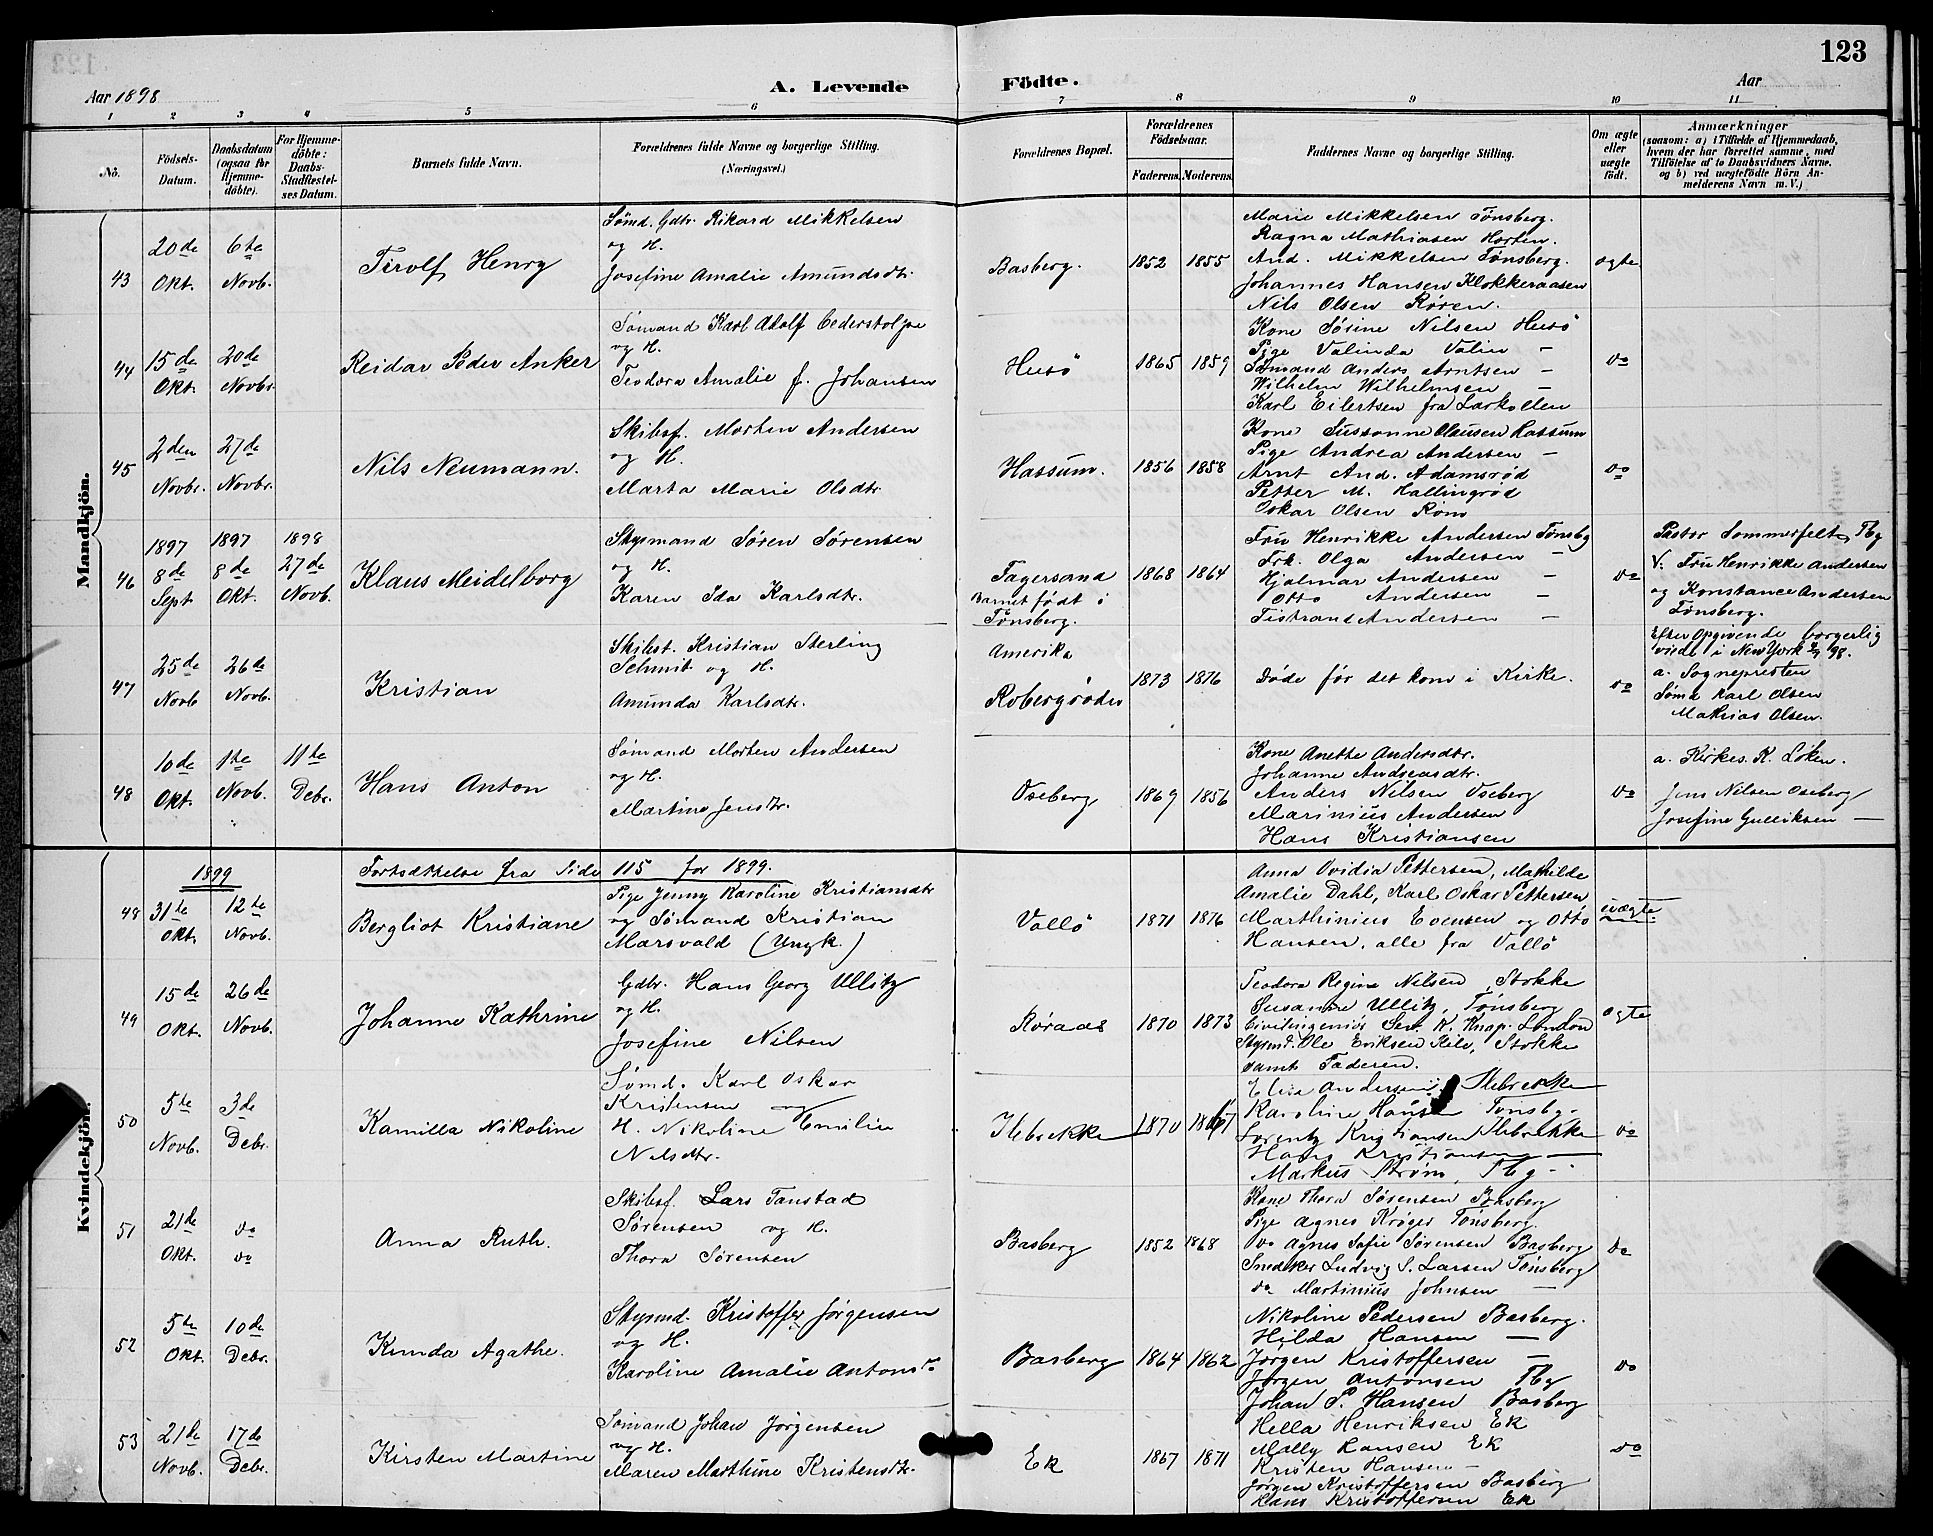 123
Aar 1898
A. Levende Födte.
Aar
1 2 3 4 5 6 7 8 9 10 11
Nö.
Födsels-Datum.
Daabsdatum (ogsaa for Hjemmedöbte).
For Hjemmedöbte: Daabs-Stadfestelses Datum.
Barnets fulde Navn.
Forældrenes fulde Navne og borgerlige Stilling. (Næringsvei.)
Forældrenes Bopæl.
Forældrenes Födselsaar.
Faderens. Moderens.
Faddernes Navne og borgerlige Stilling.
Om ægte eller uægte födt.
Anmærkninger
(saasom: a) i Tilfælde af Hjemmedaab, hvem der har forrettet samme, med Tilföielse af to Daabsvidners Navne. og b) ved uægtefödte Börn Anmelderens Navn m. V.)
Mandkjön.
43
20de Okt.
6te Novb.
Tirolf Henry
Sømd. Gdbr. Rikard Mikkelsen
og H.
Josefine Amalie Amundsdtr.
Basberg.
1852 1855
Marie Mikkelsen Tönsberg.
Ragna Mathiasen Horten.
And. Mikkelsen Tönsberg.
Johannes Hansen Klokkeraasen
Nils Olsen Røren.
ægte
44
15de Okt.
20de Novbr.
Reidar Peder Anker
Sømand Karl Adolf Cederstolpe
og H.
Teodora Amalie f. Johansen
Husö
1865 1859
Kone Sösine Nilsen Husö
Pige Valinda Valin —
Sømand Anders Arntsen —
Wilhelm Wilhelmsen —
Karl Eilertsen fra Larkollen
do
45
2den Novbr.
27de Novbr.
Nils Neumann.
Skibsf. Morten Andersen
og H.
Marta Marie Olsdtr.
Hassum.
1856 1858
Kone Sussanne Olausen Hassum
Pige Andrea Andersen —
Arnt And. Adamsrød
Petter M. Hallingrød
Oskar Olsen Rom
do
46
1897 8de Sept
1897 8de Okt.
1898 27de Novb.
Klaus Meidelborg
Stysmand Søren Sørensen
og H.
Karen Ida Karlsdtr.
Fagersand
Barnet født i
Tønsberg.
1868 1864
Fru Henrikke Andersen Tønsbg
Frk. Olga Andersen —
Hjalmar Andersen —
Otto Andersen —
Tistrand Andersen —
do
Pastor Sommerfelt, Tbg
V. Fru Henrikke Andersen
og Konstance Andersen
Tønsberg.
47
25de Novb
26de Novb.
Kristian
Skibst. Kristian Sterling
Schmit og H.
Amunda Karlsdtr.
Amerika
Robergsrødes
1873 1876
Døde før det kom i Kirke.
do
Efter Opgivende borgerlig
viede i New York 98.
a. Sognepresten
Sømd Karl Olsen
Mathias Olsen.
48
10de Okt.
1te Novb.
11te Debr.
Hans Anton
Sømand Morten Andersen
og H.
Martine Jensdtr.
Oseberg
1869 1856
Kone Anette Andersdtr.
Johanne Andreasdtr.
Anders Nilsen Oseberg
Marinius Andersen
Hans Kristiansen
do
a. Kirkes. K. Løken.
Jens Nilsen Oseberg
Josefine Gulliksen —
Kvindekjön.
1899
Fortsættelse fra Side 115 for 1899.
48
31te Okt.
12te Novb.
Bergliot Kristiane
Pige Jenny Karoline Kristiansdtr
og Sømand Kristian
Marsvald (Ungk.)
Vallö
1871 1876
Anna Ovidia Pettersen, Mathilde
Amalie Dahl, Karl Oskar Pettersen,
Marthinius Evensen og Otto
Hansen, alle fra Vallö
uægte
49
15de Okt.
26de Novb.
Johanne Kathrine
Gdbr. Hans Georg Ullitz
og H.
Josefine Nilsen
Røraas
1870 1873
Teodora Regine Nilsen, Stokke
Susanne Ullitz, Tønsberg
Civilingeniør Sev. K. Knap. London
Stysmd. Ole Eriksen Kile, Stokke
samt Faderen.
ægte
50
5te Novb.
3de Debr.
Kamilla Nikoline
Sømd. Karl Oskar
Kristensen og
H. Nikoline Emilie
Nilsdtr.
Ilebrekke
1870 1867
Elise Andersen, Ilebrekke
Karoline Hansen Tønsbg.
Lorentz Kristiansen Ilebrekke
Hans Kristiansen —
Markus Strøm, Tbg.
do
51
21de Okt.
do do
Anna Ruth.
Skibsf. Lars Tanstad
Sørensen og H.
Thora Sørensen
Basberg
1852 1868
Kone Thora Sørensen Basberg
Pige Agnes Krøger Tønsberg.
do Agnes Sofie Sørensen Basberg
Snedker Ludvig S. Larsen Tønsberg
do Martinius Johnsen —
do
52
5te Okt.
10de Debr.
Kunda Agathe.
Stysmd. Kristoffer Jørgensen
og H.
Karoline Amalie Antonsdr
Basberg
1864 1862
Nikoline Pedersen Basberg.
Hilda Hansen —
Jørgen Kristoffersen —
Jørgen Antonsen Tbg
Johan P. Hansen Basberg
do
53
21de Novb.
17de Debr.
Kirsten Martine
Sømand Johan Jørgensen
og H.
Maren Marthine Kristensdtr.
Ek
1867 1871
Hella Henriksen Ek
Mally Hansen Ek
Kristen Hansen —
Jørgen Kristoffersen Basberg
Hans Kristoffersen Ek
do